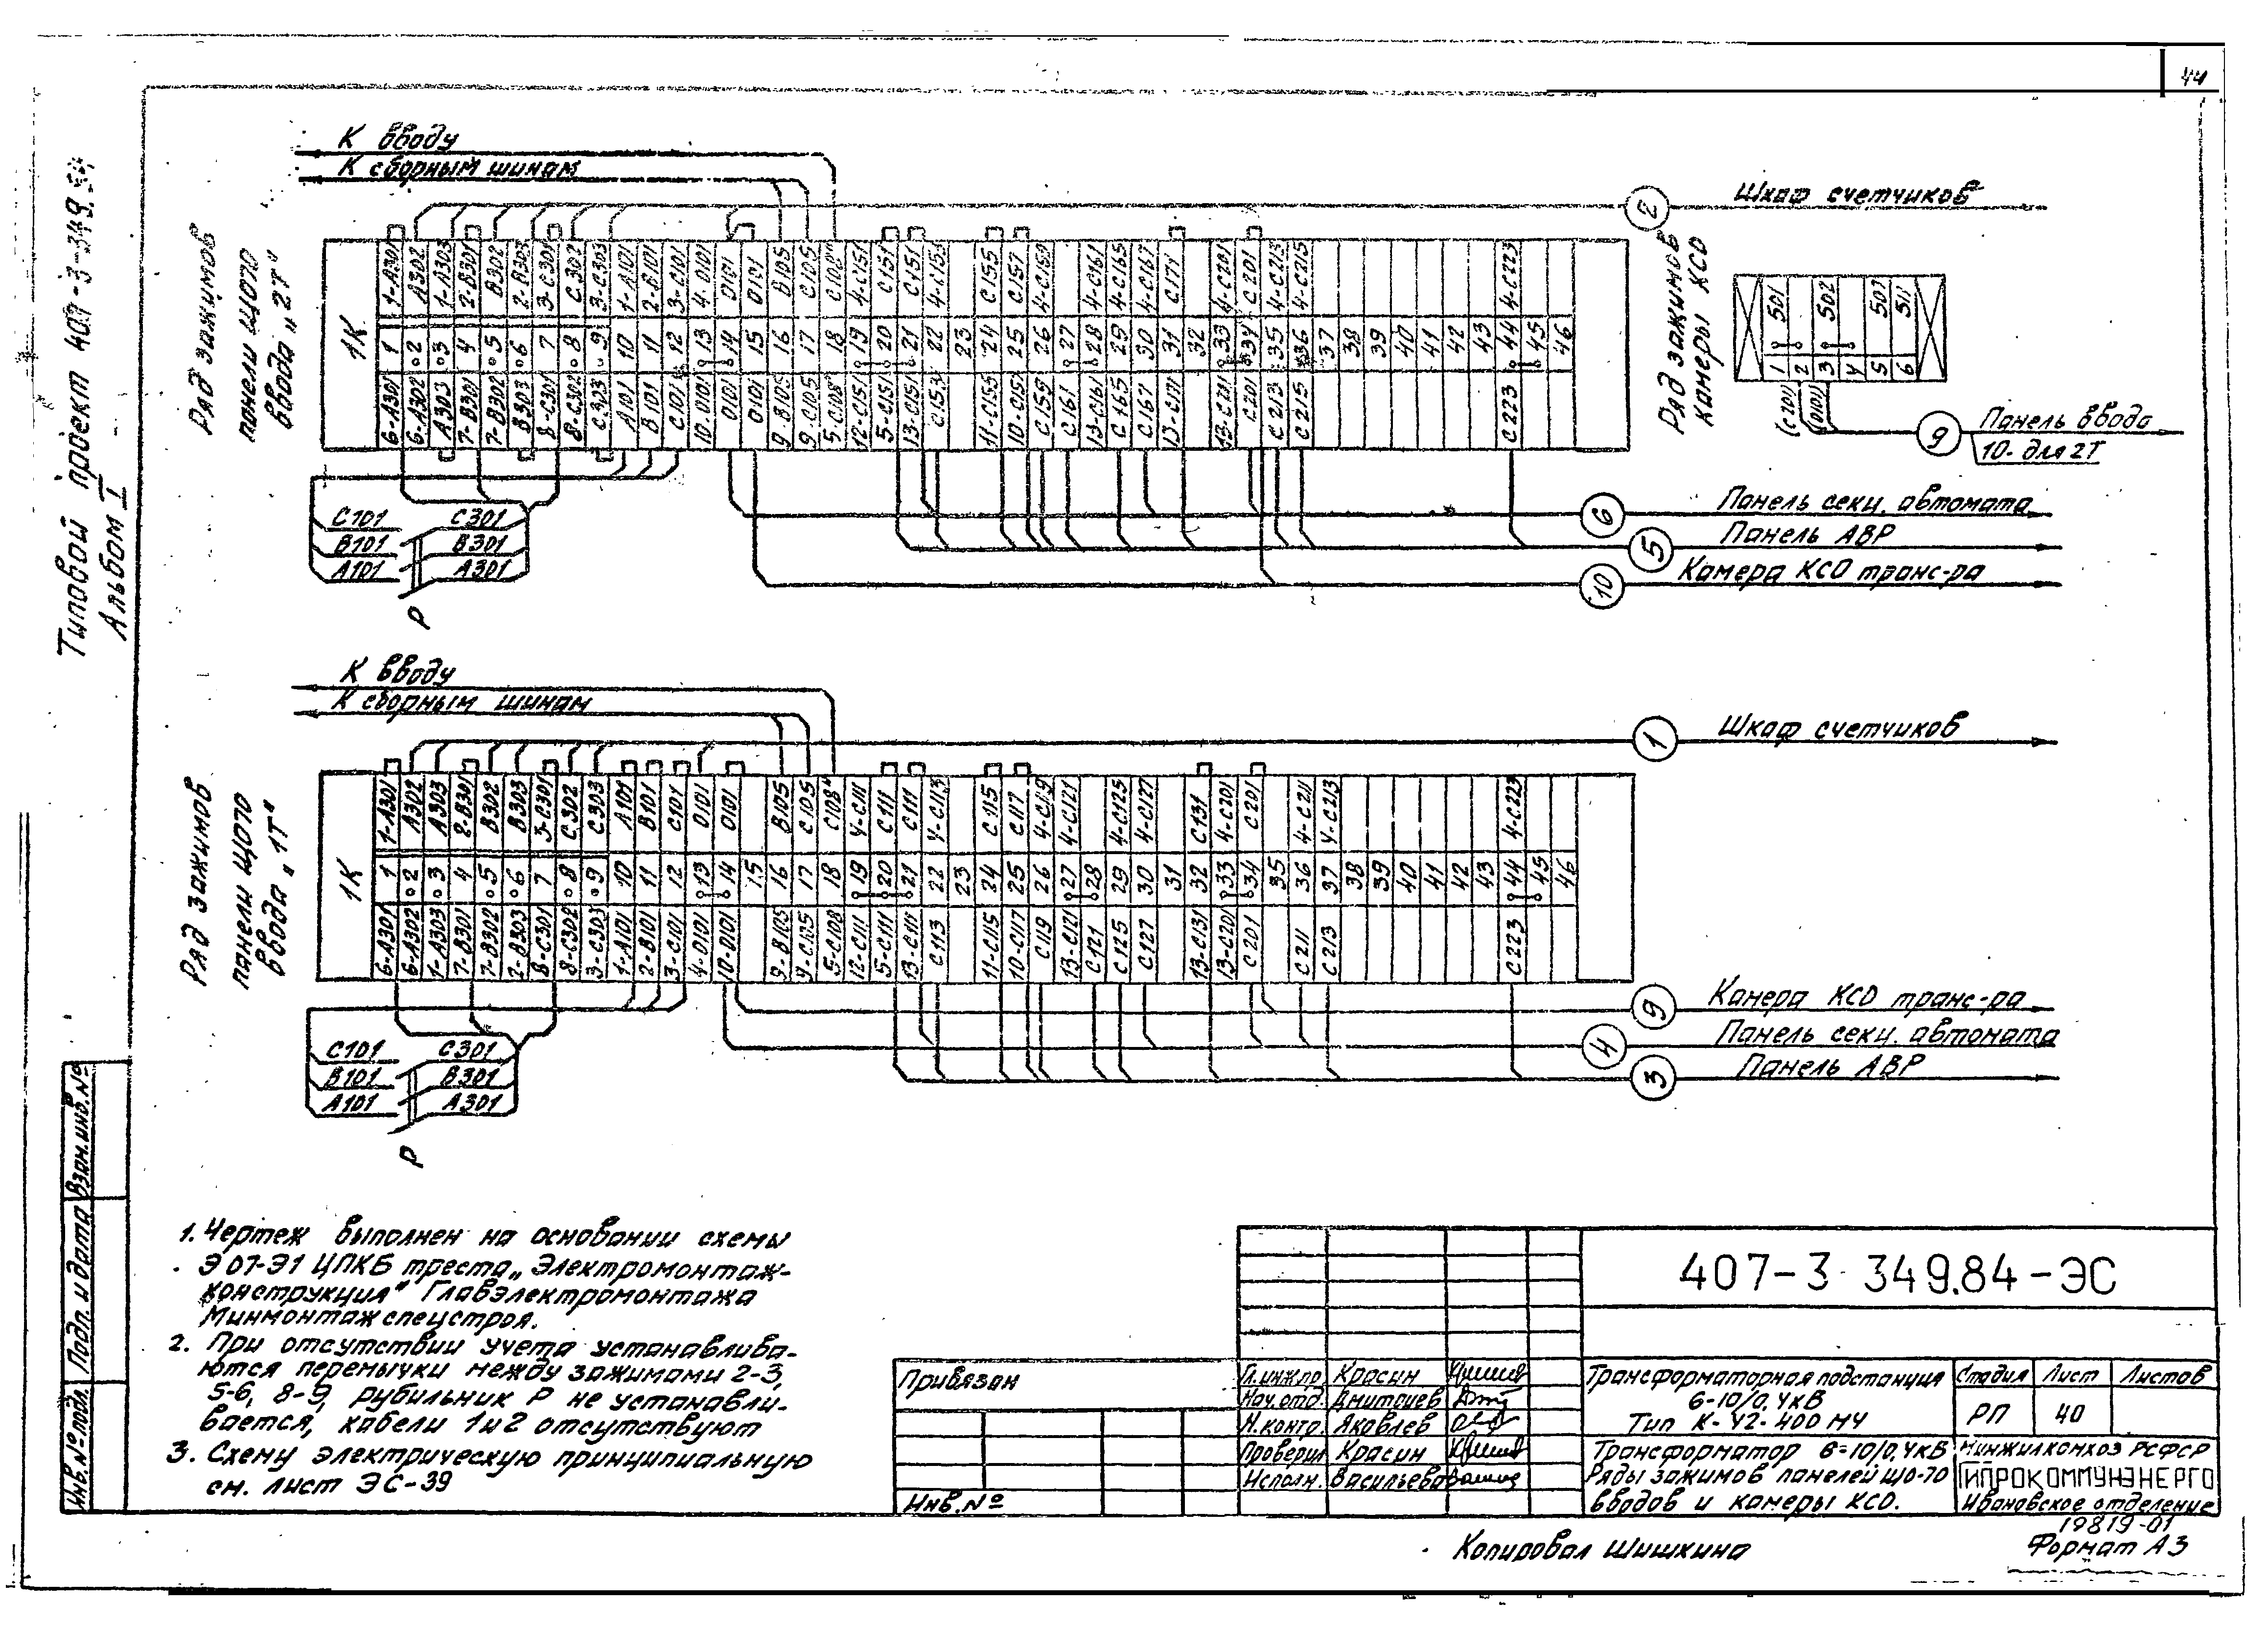 44
Типовой проект 407-3-349.84
Альбом I
К вводу
К сборным шинам
Ряд зажимов
панели ЩО70
ввода „2Т"
Шкаф счетчиков
2
1К
1-А301 А302 1-А303 2-В301 В302 2-В303 3-С301 С302 3-С303 1-А101 2-В101 3-С101 4-0101 0101 0101 В105 С105 С108" 4-С151 С151 С151 4-С153 С155 С157 4-С159 4-С161 4-С165 4-С167 С171 4-С201 С201 4-С213 4-С215 4-С223
1 2 3 4 5 6 7 8 9 10 11 12 13 14 15 16 17 18 19 20 21 22 23 24 25 26 27 28 29 30 31 32 33 34 35 36 37 38 39 40 41 42 43 44 45 46
6-А301 6-А302 А303 7-В301 7-В302 В303 8-С301 8-С302 С303 А101 В101 С101 10-0101 0101 0101 9-В105 9-С105 5-С108" 12-С151 5-С151 13-С151 С153 11-С155 10-С157 С159 С161 13-С161 С165 С167 13-С171 13-С201 С201 С213 С215 С223
Ряд зажимов
камеры КСО
501 502 507 511
1 2 3 4 5 6
(С201)
(0101)
9
Панель ввода
10- для 2Т
С101 С301
В101 В301
А101 А301
Р
6
Панель секц. автомата
5
Панель АВР
10
Камера КСО транс-ра
К вводу
К сборным шинам
Ряд зажимов
панели ЩО70
ввода „1Т"
1
Шкаф счетчиков
1К
1-А301 А302 А303 2-В301 В302 В303 3-С301 С302 С303 А101 В101 С101 0101 0101 В105 С105 С108" 4-С111 С111 С111 4-С113 С115 С117 4-С119 4-С121 4-С125 4-С127 С131 4-С201 С201 4-С211 4-С213 4-С223
1 2 3 4 5 6 7 8 9 10 11 12 13 14 15 16 17 18 19 20 21 22 23 24 25 26 27 28 29 30 31 32 33 34 35 36 37 38 39 40 41 42 43 44 45 46
6-А301 6-А302 1-А303 7-В301 7-В302 2-В303 8-С301 8-С302 3-С303 1-А101 2-В101 3-С101 4-0101 10-0101 9-В105 9-С105 5-С108 12-С111 5-С111 13-С111 С113 11-С115 10-С117 С119 13-С121 С121 С125 С127 13-С131 13-С201 С201 С211 С213 С223
С101 С301
В101 В301
А101 А301
Р
9
Камера КСО транс-ра
4
Панель секц. автомата
3
Панель АВР
1. Чертеж выполнен на основании схемы
Э07-Э1 ЦПКБ треста „Электромонтаж-
конструкция" Главэлектромонтажа
Минмонтажспецстроя.
2. При отсутствии учета устанавлива-
ются перемычки между зажимами 2-3,
5-6, 8-9, рубильник Р не устанавли-
вается, кабели 1 и 2 отсутствуют
3. Схему электрическую принципиальную
см. лист ЭС-39
Взам.инв.№
Подп. и дата
Инв.№подл.
Привязан
Инв.№
407-3 349.84-ЭС
Гл.инж.пр. Красин
Нач.отд. Дмитриев
Н.контр. Яковлев
Проверил Красин
Исполн. Васильева
Трансформаторная подстанция
6-10/0,4кВ
Тип К-42-400М4
Стадия Лист Листов
РП 40
Трансформатор 6-10/0,4кВ
Ряды зажимов панелей ЩО-70
вводов и камеры КСО.
Минжилкомхоз РСФСР
ГИПРОКОММУНЭНЕРГО
Ивановское отделение
19819-01
Копировал Шишкина
Формат А3